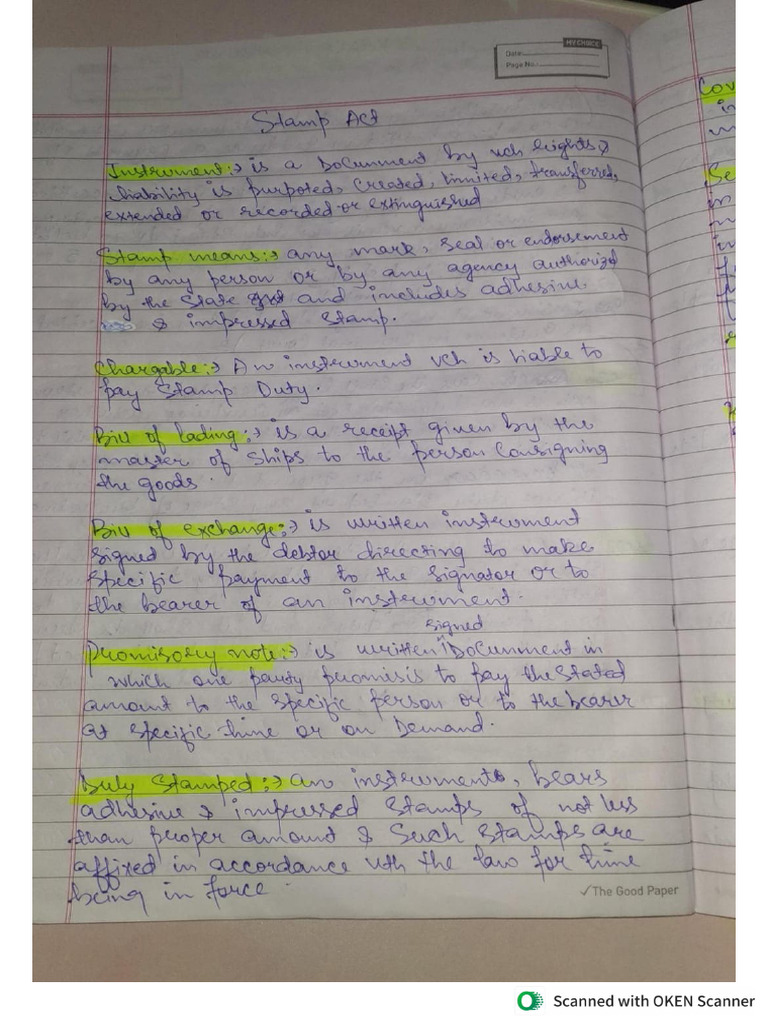 MY CHOICE
Date:
Page No.:
Stamp Act
Instrument:→ is a Document by wch Rights &
liability is purpoted, created, limited, transferred,
extended or recorded or extinguished
Stamp means:→ any mark, seal or endorsement
by any person or by any agency authorized
by the State Govt and includes adhesive
& impressed Stamp.
Chargable:→ An instrument wch is liable to
pay Stamp Duty.
Bill of lading:→ is a receipt given by the
master of Ships to the person Consigning
the goods.
Bill of exchange:→ is written instrument
signed by the debtor directing to make
specific payment to the signator or to
the bearer of an instrument.
signed
Promisory note:→ is written Document in
which one party promisis to pay the stated
amount to the specific person or to the bearer
at specific time or on Demand.
Duly Stamped:→ an instruments, bears
adhesive & impressed stamps of not less
than proper amount & Such stamps are
affixed in accordance wth the law for time
being in force.
✓The Good Paper
Cov
in
Se
in
Scanned with OKEN Scanner